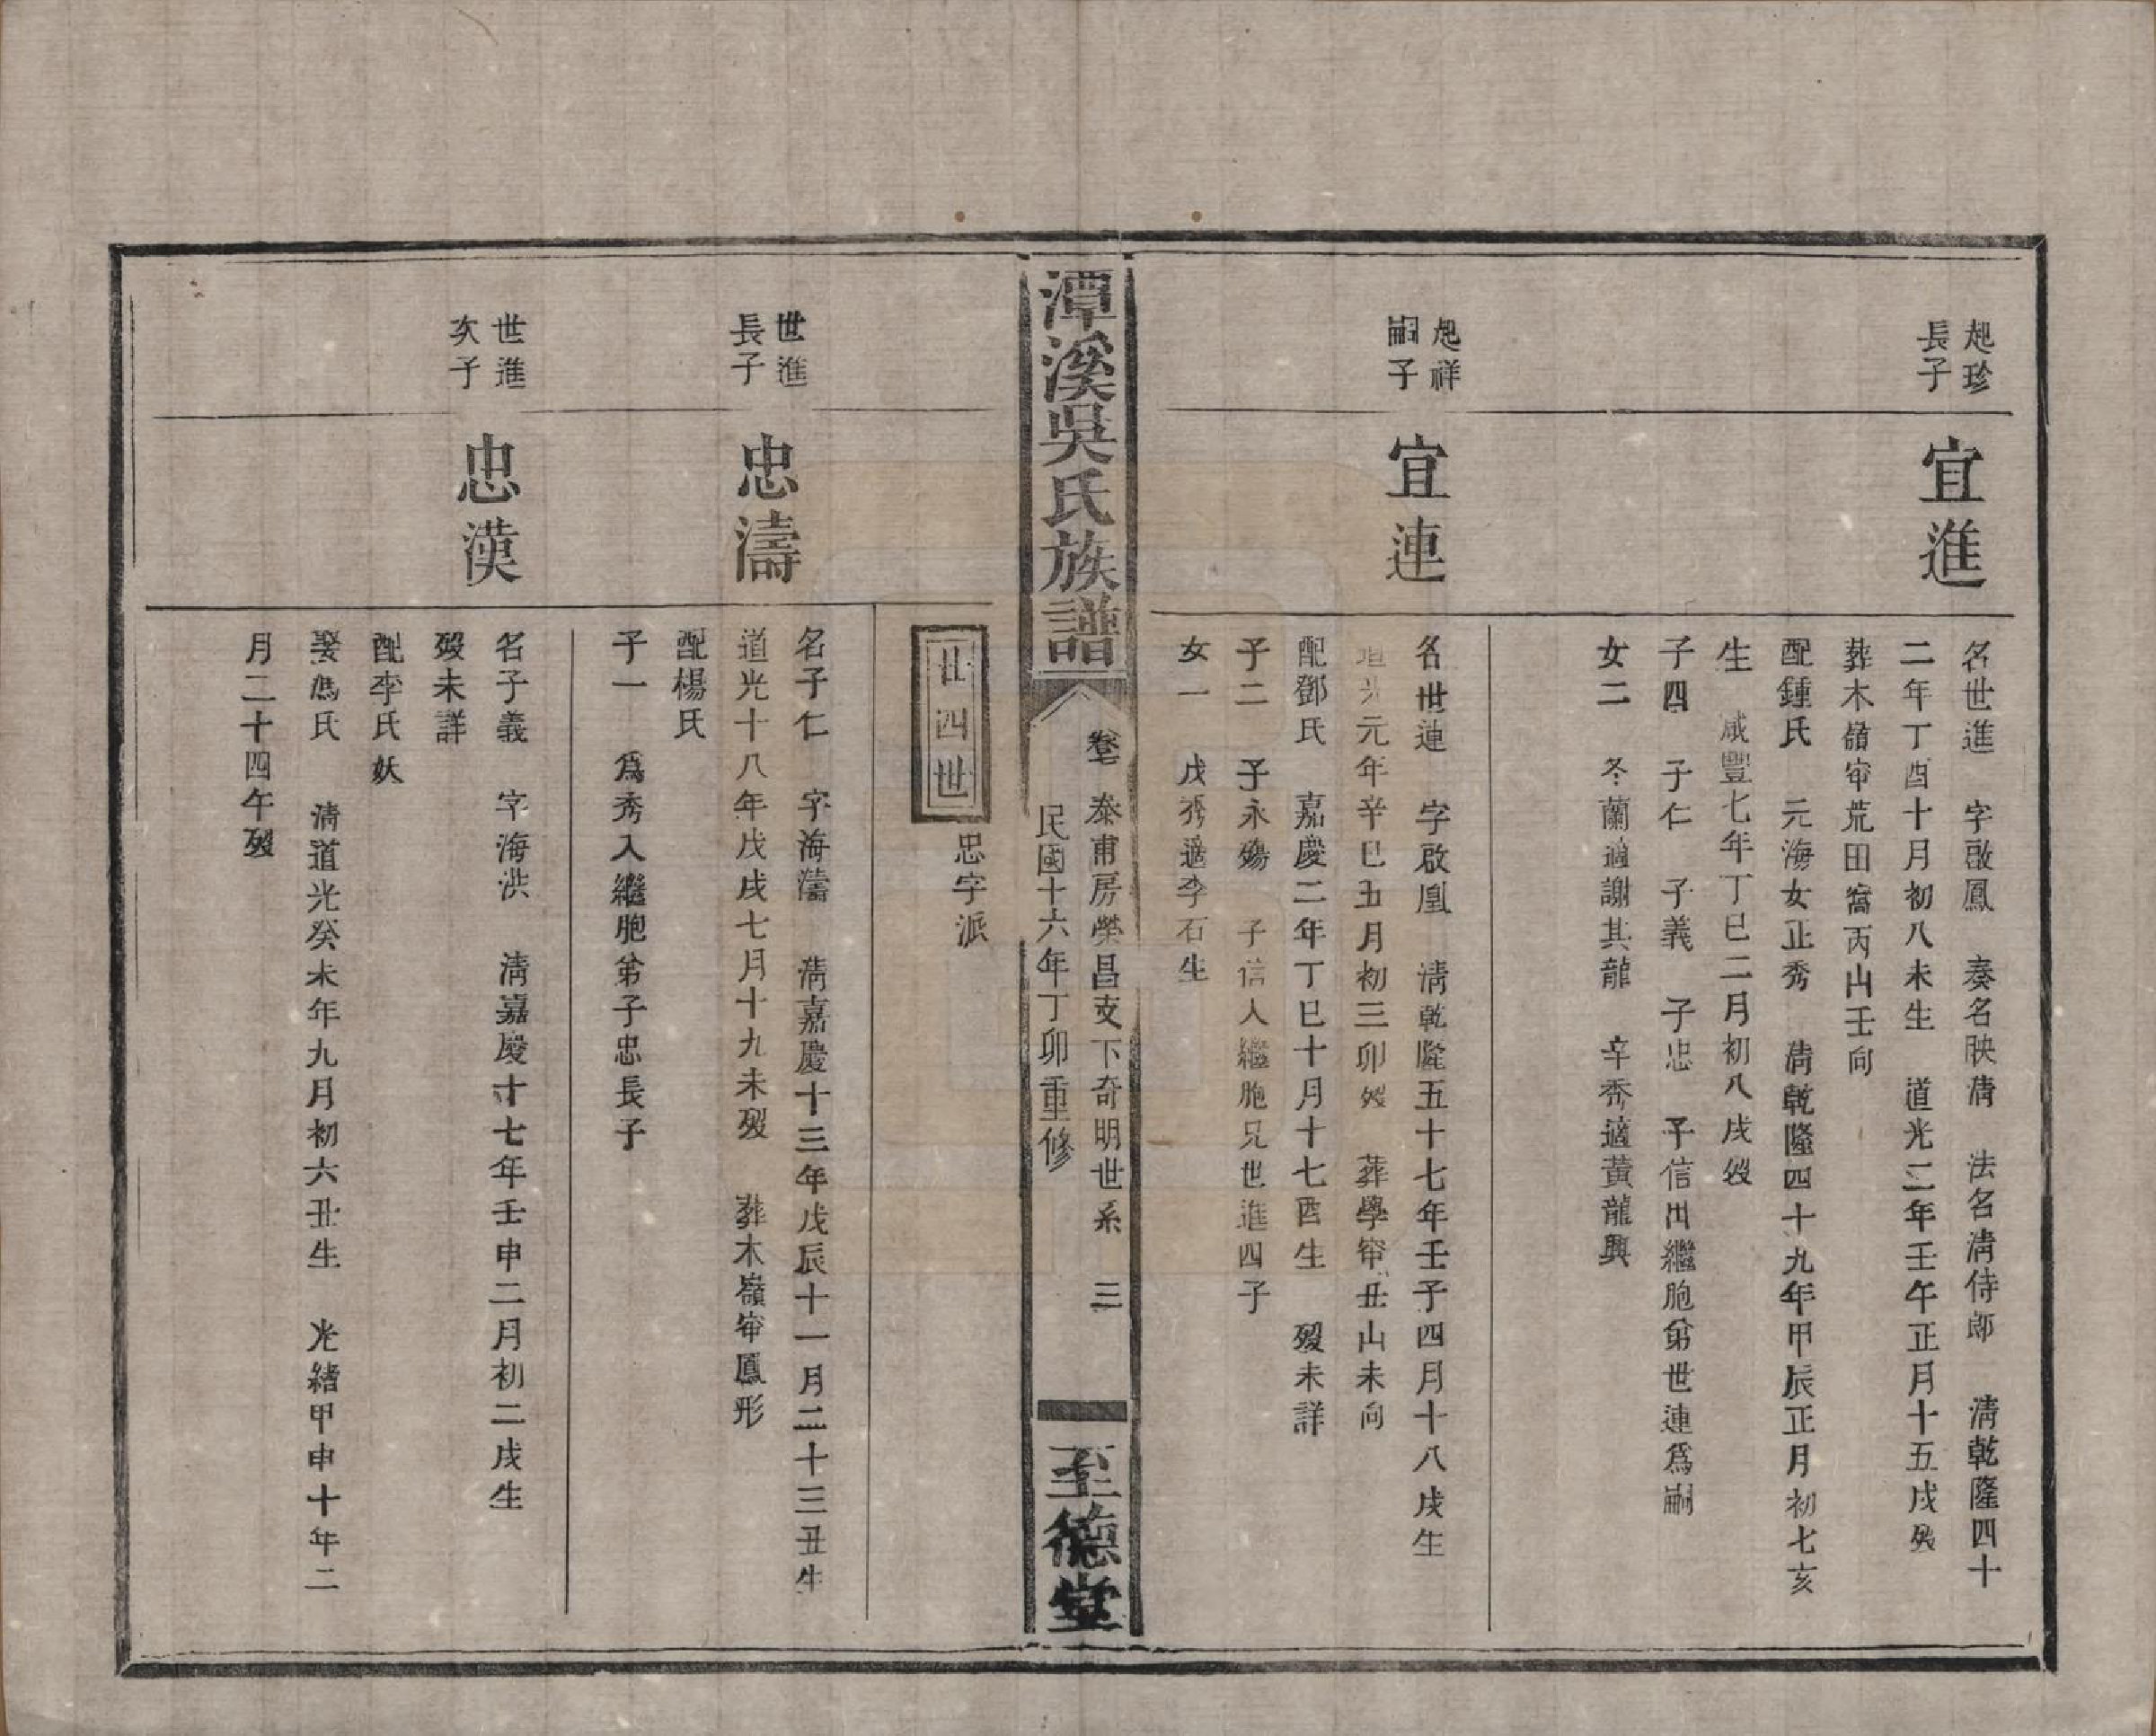 起珍
長子
宜進
名世進 字啟鳳 奏名映清 法名清侍郎 清乾隆四十
二年丁酉十月初八未生 道光二年壬午正月十五戌歿
葬木嶺窜荒田窩丙山壬向
配鍾氏 元海女正秀 清乾隆四十九年甲辰正月初七亥
生 咸豐七年丁巳二月初八戌歿
子四 子仁 子義 子忠 子信出繼胞弟世連為嗣
女二 冬蘭適謝其龍 辛秀適黃龍興
起祥
嗣子
宜連
名世連 字啟凰 清乾隆五十七年壬子四月十八戌生
道光元年辛巳五月初三卯歿 葬學窜丑山未向
配鄧氏 嘉慶二年丁巳十月十七酉生 歿未詳
子二 子永殤 子信人繼胞兄世進四子
女一 戊秀適李石生
潭溪吳氏族譜
泰甫房榮昌支下奇明世系 三
民國十六年丁卯重修
至德堂
廿四世
忠字派
世進
長子
忠濤
名子仁 字海濤 清嘉慶十三年戊辰十一月二十三丑生
道光十八年戊戌七月十九未歿 葬木嶺窜鳳形
配楊氏
子一 為秀入繼胞弟子忠長子
世進
次子
忠漢
名子義 字海洪 清嘉慶十七年壬申二月初二戌生
歿未詳
配李氏妖
娶馮氏 清道光癸未年九月初六丑生 光緒甲申十年二
月二十四午歿